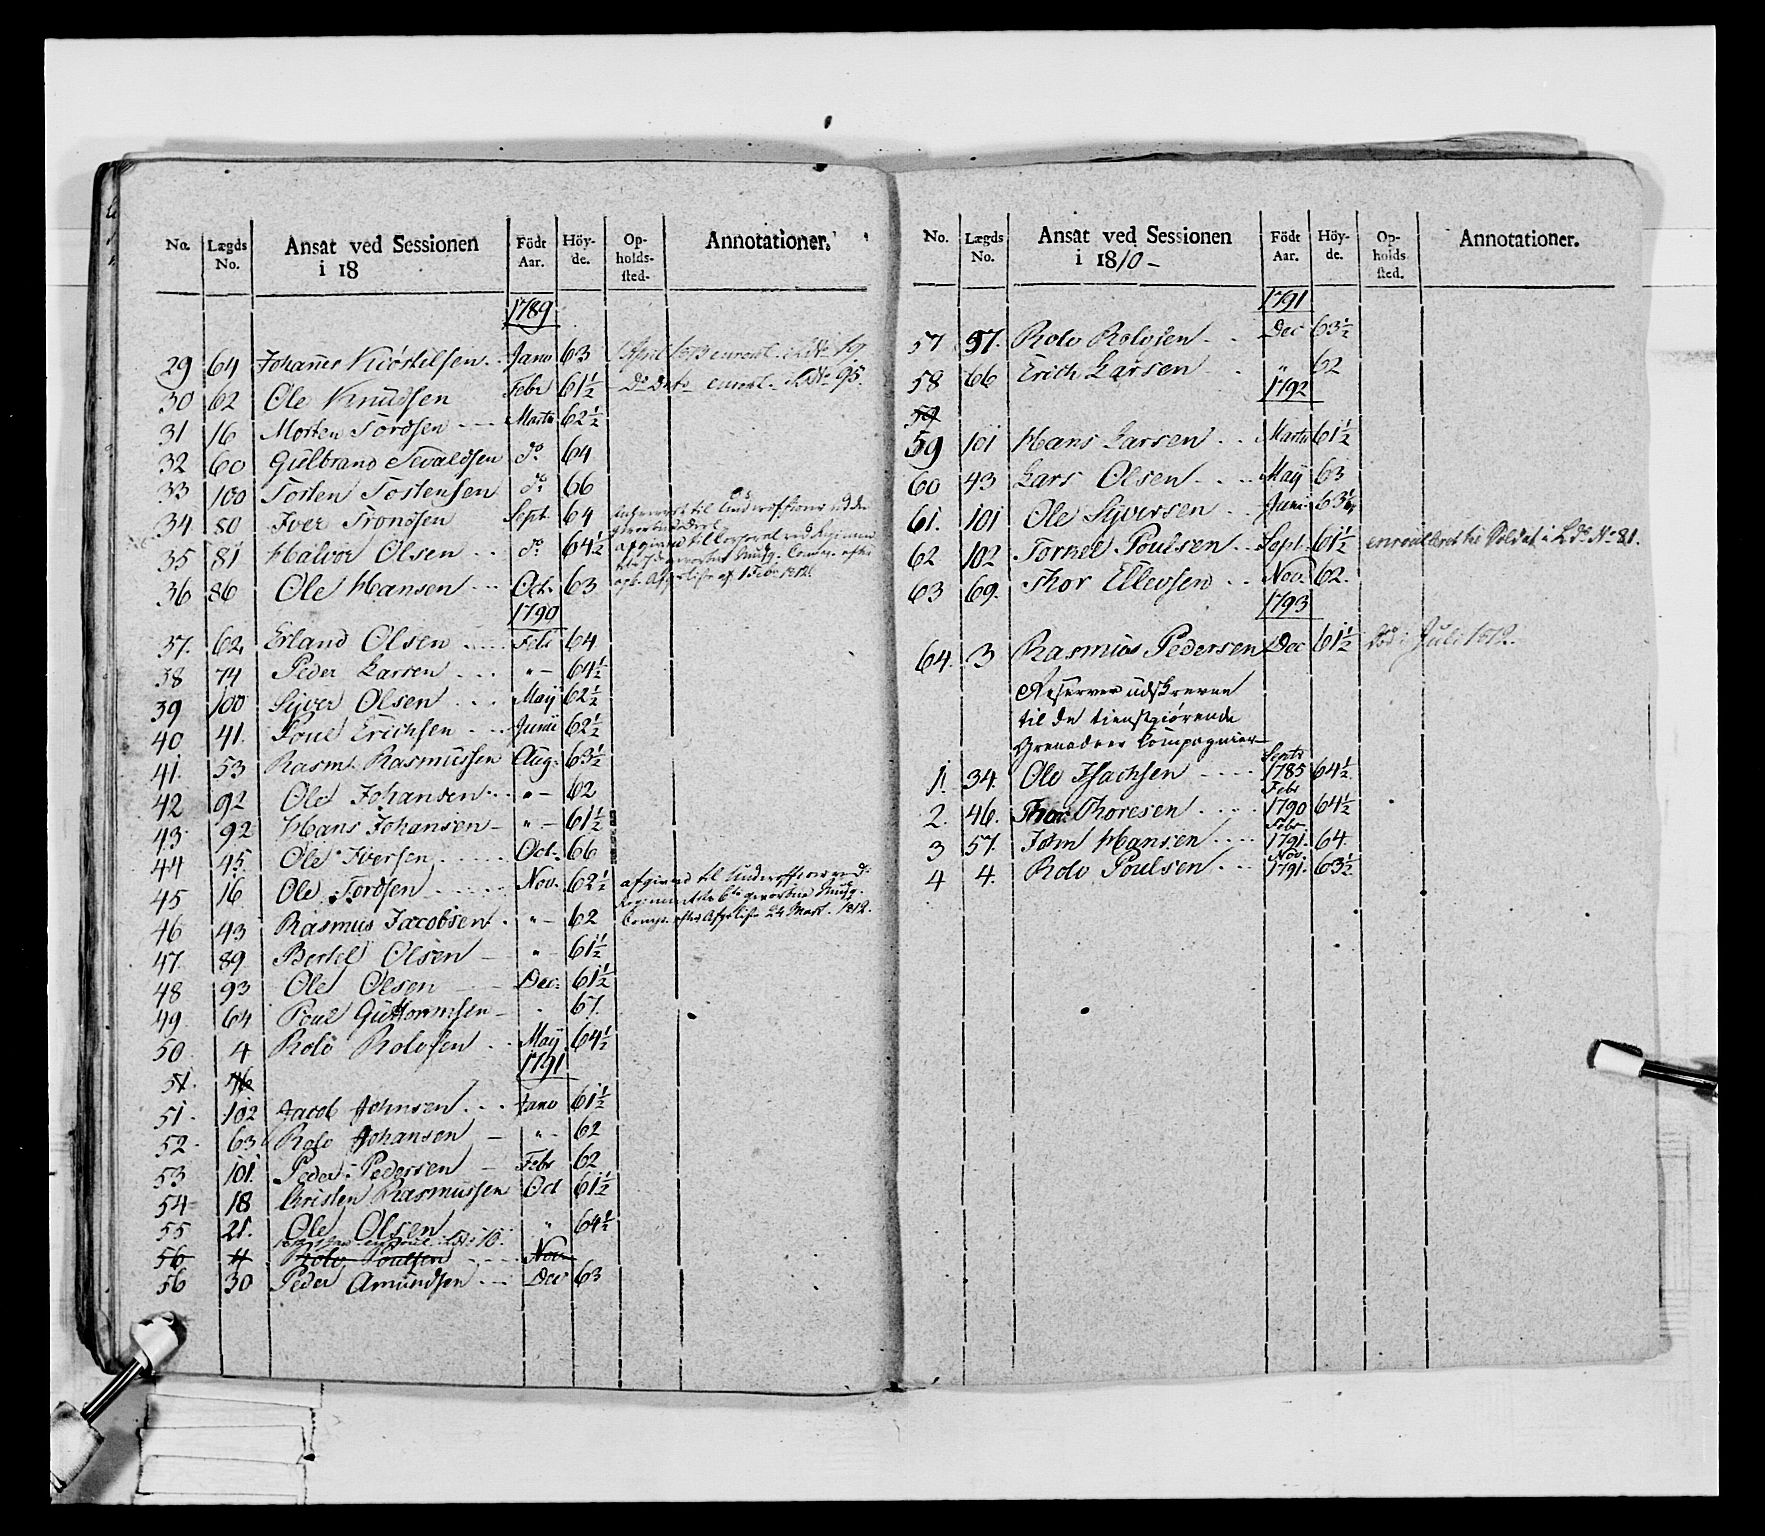 No. Lægds No. Ansat ved Sessionen i 18 Födt Aar. Höy-de. Op-holds-sted. Annotationer.
1789
29 64 Johannes Kiöstelsen Janv 63 April 1813 enroul. i Ldt No 19.
30 62 Ole Knudsen Febr 61½ Do Dato enroul. i Ldt No 95.
31 16 Morten Tordsen Marti 62½
32 60 Gulbrand Sevaldsen do 64
33 100 Tosten Tostensen do 66
34 80 Iver Trondsen Sept. 64
35 81 Halvor Olsen do 64½
36 86 Ole Hansen Oct. 63
1790
37. 62 Erland Olsen Feb 64
38 74 Peder Larsen "– 64½
39 100 Syver Olsen May 62½
40 41. Poul Erichsen Junii 62½
41. 53 Rasm. Rasmussen Aug. 63½
42 92 Ole Johansen "– 62
43 92 Hans Johansen "– 61½
44 45 Ole Iversen Oct. 66
45 16 Ole Tordsen Nov. 62½ afgived til Underofficeer ved
Regimentets 6te gevorbne Musq.
Comp. efter Afgelise 24 Mart. 1812.
46 43 Rasmus Jacobsen "– 62
47. 89 Bertel Olsen " 61½
48 93 Ole Olsen Dec. 61½
49 64 Poul Guttormsen 67.
50 4 Rolv Rolvsen May 64½
1791
51. 46
51. 102 Jacob Johnsen Janv 61½
52 63 Rolv Johansen "– 62
53 101. Peder Pedersen Febr 62
54 18 Christen Rasmussen Oct 61½
55 21. Ole Olsen " 64½
56 4 Rolv Poulsen Nov
56 30 Peder Amundsen Dec 63
No. Lægds No. Ansat ved Sessionen i 1810– Födt Aar. Höy-de. Op-holds sted. Annotationer.
1791
57 97. Rolv Rolvsen Dec 63½
58 66 Erich Larsen " 62
1792
59
59 101 Hans Larsen Marti 61½
60 43 Lars Olsen May 63
61. 101 Ole Syversen Junii 63½
62 102 Torkel Poulsen Sept. 61½ enroulleret til Soldat i Ldt No 81.
63 69. Thor Ellevsen Nov. 62.
1793
64. 3 Rasmus Pedersen Dec 61½ Död i Juli 1812.
Reserver udskreven
til de tienstgiörende
Grenadeer Compagnier
1. 34. Ole Isachsen Septr 1785 64½
2. 46. Thor Thoresen Febr 1790 64½
3 57. John Hansen Febr 1791. 64.
4 4. Rolv Poulsen Nov. 1791. 63½